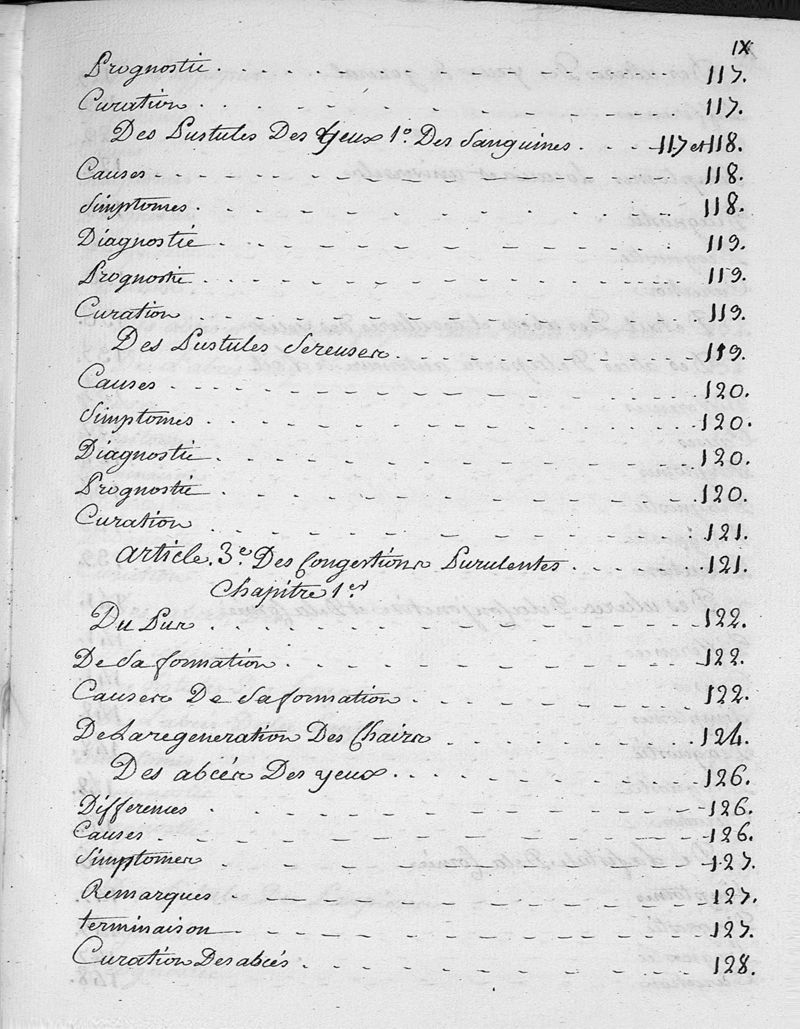 IX
Prognostic . . . . . . . . . . 117.
Curation . . . . . . . . . . 117.
Des Pustules Des Yeux 1° Des Sanguines . . . . 117 et 118.
Causes . . . . . . . . . . 118.
Simptomes . . . . . . . . . . 118.
Diagnostic . . . . . . . . . . 119.
Prognostic . . . . . . . . . . 119.
Curation . . . . . . . . . . 119.
Des Pustules Sereuses . . . . . . . . . . 119.
Causes . . . . . . . . . . 120.
Simptomes . . . . . . . . . . 120.
Diagnostic . . . . . . . . . . 120.
Prognostic . . . . . . . . . . 120.
Curation . . . . . . . . . . 121.
article 3e. Des Congestions Purulentes . . . . . 121.
Chapitre 1er
Du Pus . . . . . . . . . . 122.
De Sa formation . . . . . . . . . . 122.
Causes De Sa formation . . . . . . . . . . 122.
De La regeneration Des Chairs . . . . . . . . 124.
Des abcés Des yeux . . . . . . . . . . 126.
Differences . . . . . . . . . . 126.
Causes . . . . . . . . . . 126.
Simptomes . . . . . . . . . . 127.
Remarques . . . . . . . . . . 127.
terminaison . . . . . . . . . . 127.
Curation Des abcés . . . . . . . . . . 128.